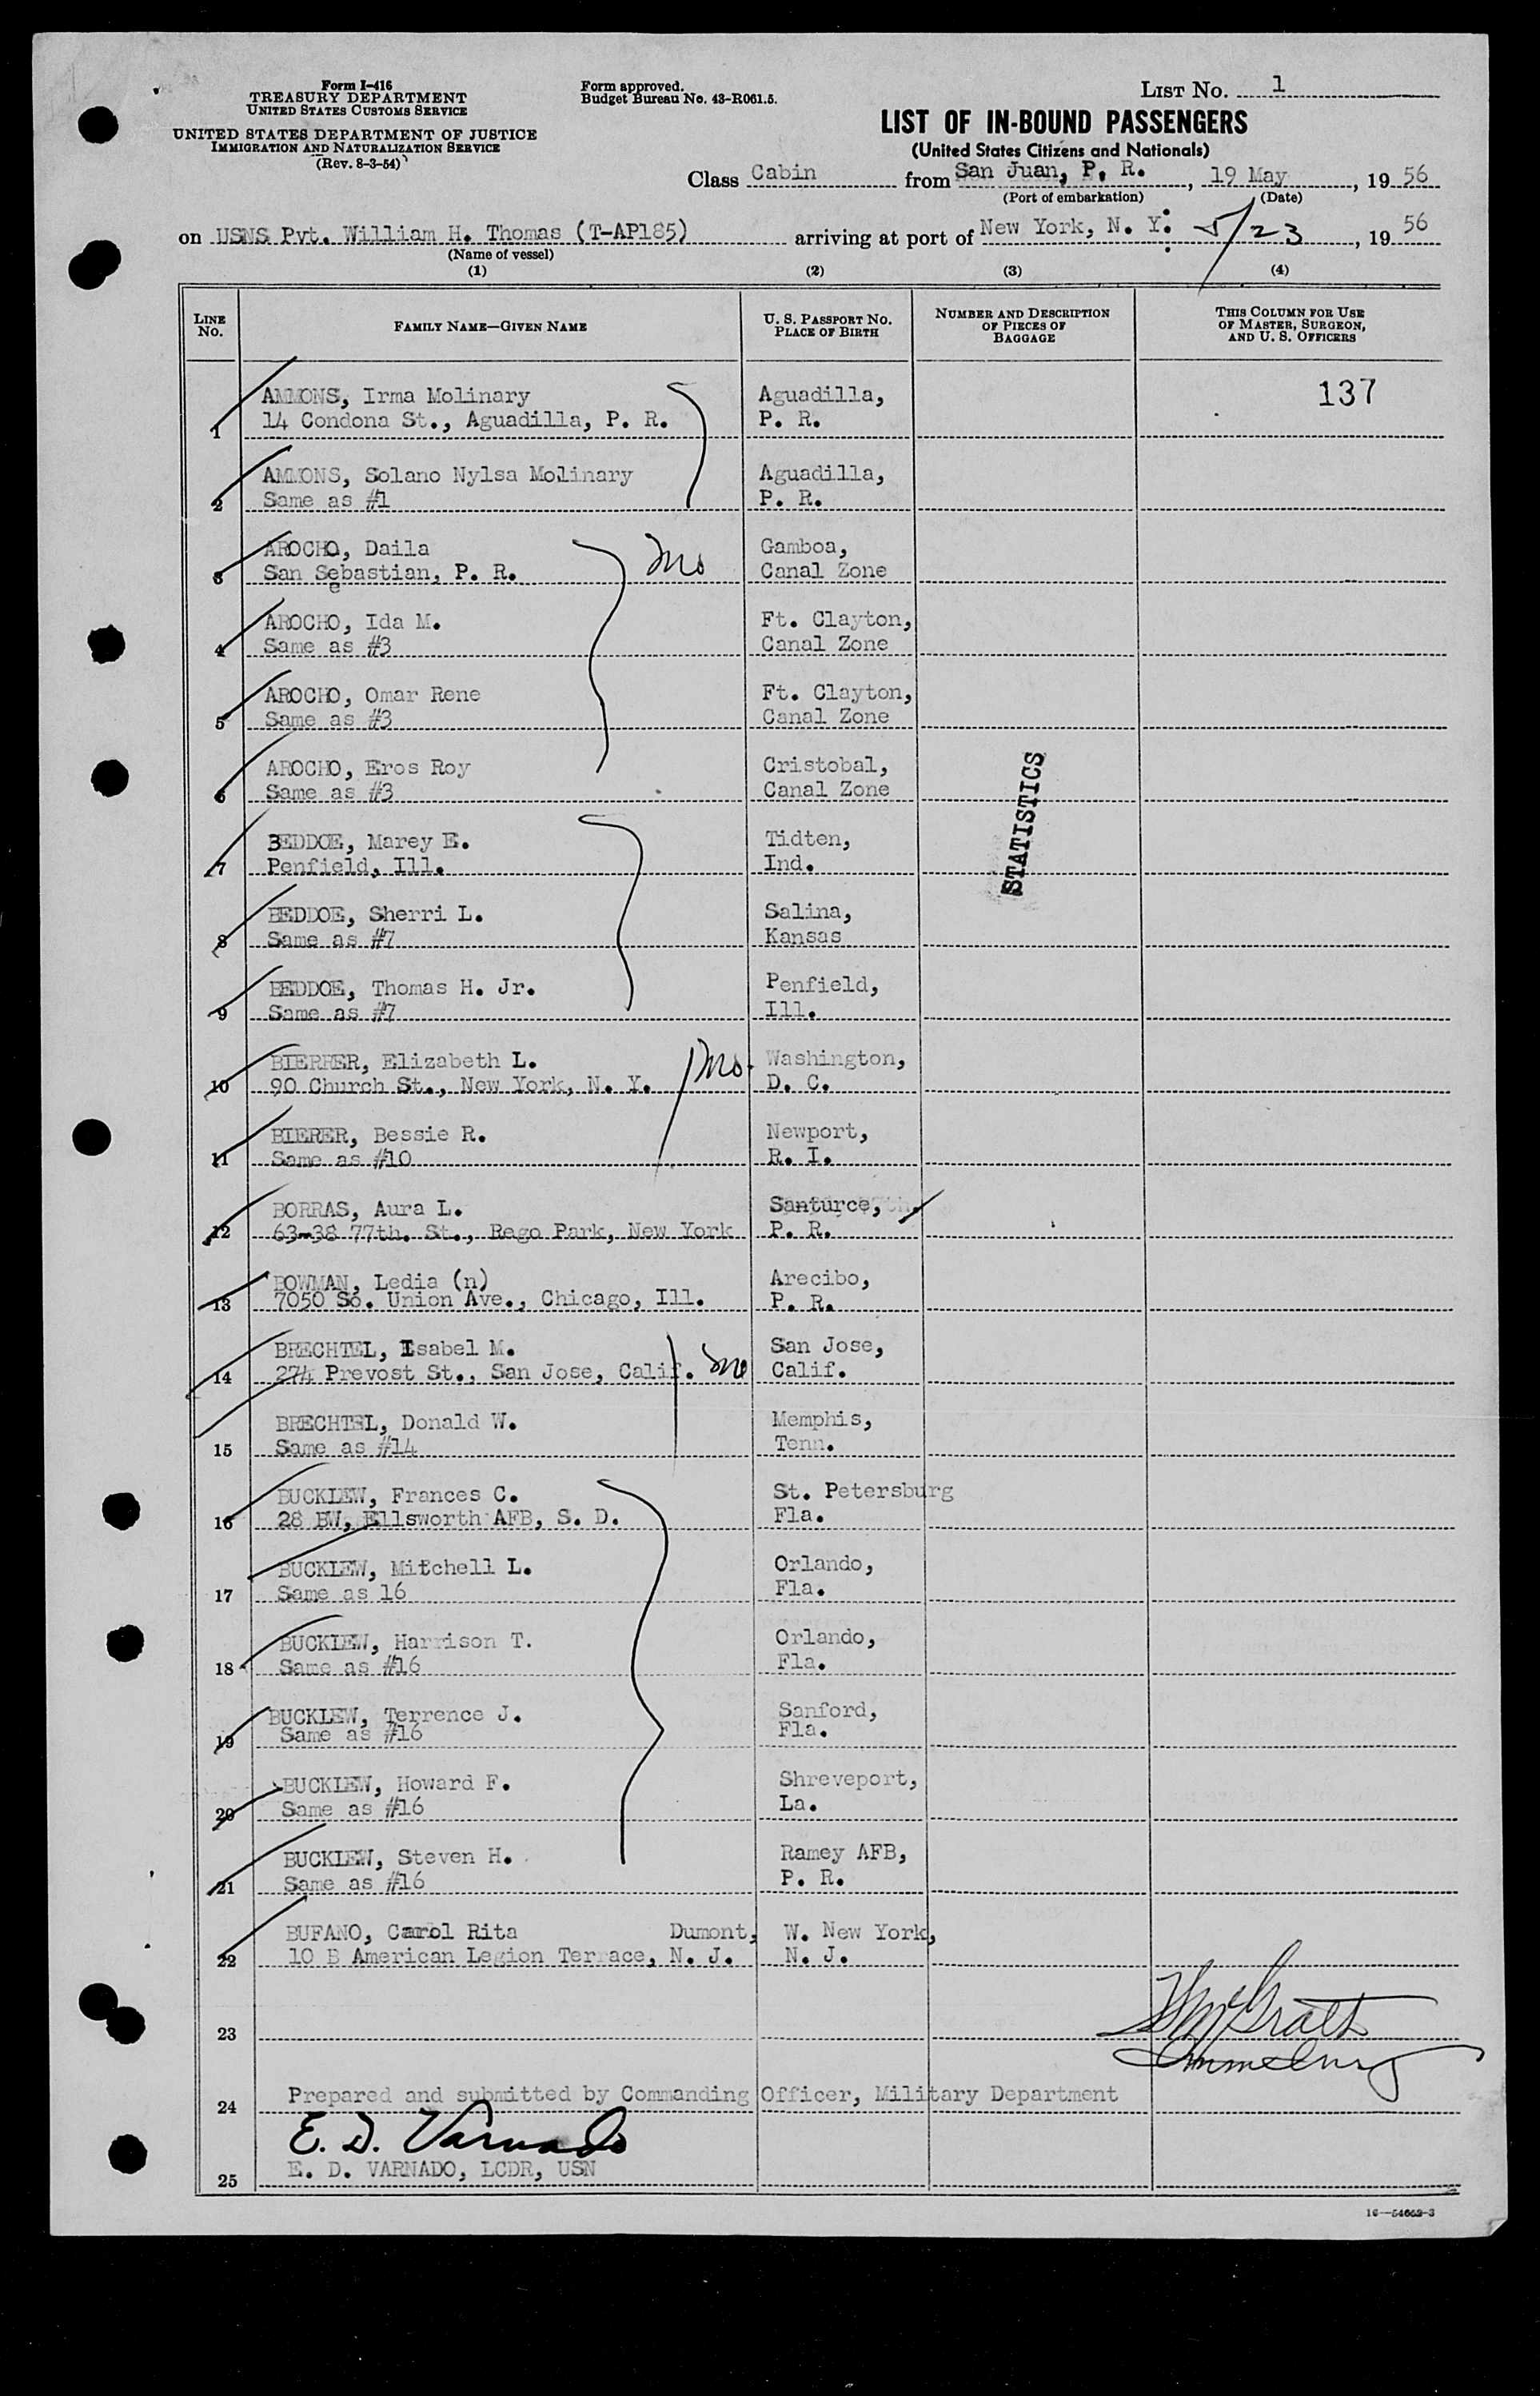 Form I-416
TREASURY DEPARTMENT
UNITED STATES CUSTOMS SERVICE
UNITED STATES DEPARTMENT OF JUSTICE
IMMIGRATION AND NATURALIZATION SERVICE
(Rev. 8-3-54)
Form approved.
Budget Bureau No. 43-R061.5.
LIST No. 1
LIST OF IN-BOUND PASSENGERS
(United States Citizens and Nationals)
Class Cabin from San Juan, P. R., 19 May, 19 56
(Port of embarkation) (Date)
on USNS Pvt. William H. Thomas (T-AP185) arriving at port of New York, N. Y. 5/23, 19 56
(Name of vessel)
(1) (2) (3) (4)
LINE No. FAMILY NAME—GIVEN NAME U. S. PASSPORT NO. PLACE OF BIRTH NUMBER AND DESCRIPTION OF PIECES OF BAGGAGE THIS COLUMN FOR USE OF MASTER, SURGEON, AND U. S. OFFICERS
AMMONS, Irma Molinary Aguadilla, 137
1 14 Condona St., Aguadilla, P. R. P. R.
AMMONS, Solano Nylsa Molinary Aguadilla,
2 Same as #1 P. R.
AROCHO, Daila Gamboa,
3 San Sebastian, P. R. Canal Zone
e
AROCHO, Ida M. Ft. Clayton,
4 Same as #3 Canal Zone
AROCHO, Omar Rene Ft. Clayton,
5 Same as #3 Canal Zone
AROCHO, Eros Roy Cristobal,
6 Same as #3 Canal Zone
STATISTICS
BEDDOE, Marey E. Tidten,
7 Penfield, Ill. Ind.
BEDDOE, Sherri L. Salina,
8 Same as #7 Kansas
BEDDOE, Thomas H. Jr. Penfield,
9 Same as #7 Ill.
BIERER, Elizabeth L. Washington,
10 90 Church St., New York, N. Y. D. C.
BIERER, Bessie R. Newport,
11 Same as #10 R. I.
BORRAS, Aura L. Santurce,
12 63-38 77th. St., Rego Park, New York P. R.
BOWMAN, Ledia (n) Arecibo,
13 7050 So. Union Ave., Chicago, Ill. P. R.
BRECHTEL, Isabel M. San Jose,
14 274 Prevost St., San Jose, Calif. Calif.
BRECHTEL, Donald W. Memphis,
15 Same as #14 Tenn.
BUCKLEW, Frances C. St. Petersburg
16 28 BW, Ellsworth AFB, S. D. Fla.
BUCKLEW, Mitchell L. Orlando,
17 Same as 16 Fla.
BUCKLEW, Harrison T. Orlando,
18 Same as #16 Fla.
BUCKLEW, Terrence J. Sanford,
19 Same as #16 Fla.
BUCKLEW, Howard F. Shreveport,
20 Same as #16 La.
BUCKLEW, Steven H. Ramey AFB,
21 Same as #16 P. R.
BUFANO, Carol Rita Dumont, W. New York,
22 10 B American Legion Terrace, N. J. N. J.
23 McGrath
24 Prepared and submitted by Commanding Officer, Military Department
E. D. Varnado
25 E. D. VARNADO, LCDR, USN
16—54662-3